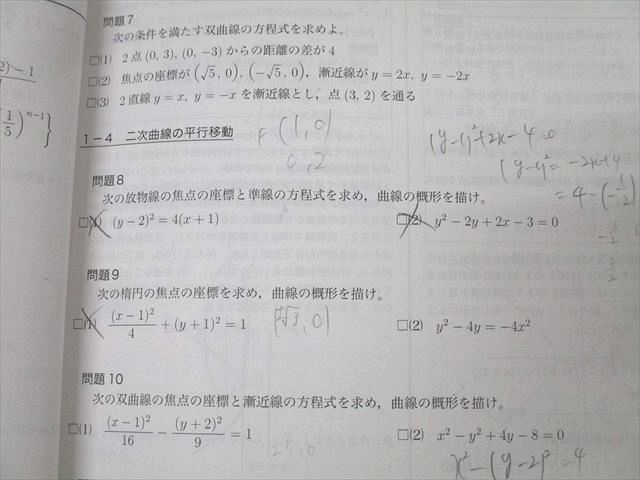 問題7
次の条件を満たす双曲線の方程式を求めよ。
□(1) 2点(0, 3), (0, −3)からの距離の差が4
□(2) 焦点の座標が(√5, 0), (−√5, 0), 漸近線が y = 2x, y = −2x
□(3) 2直線 y = x, y = −x を漸近線とし, 点(3, 2)を通る
2) − 1
(1/5)^{n−1}}
1−4 二次曲線の平行移動
F (1, 0)
0, 2
(y−1)²+2x−4=0
(y−1)² = −2x+4
= 4 − (−1/2)
問題8
次の放物線の焦点の座標と準線の方程式を求め, 曲線の概形を描け。
□(1) (y − 2)² = 4(x + 1)
□(2) y² − 2y + 2x − 3 = 0
問題9
次の楕円の焦点の座標を求め, 曲線の概形を描け。
□(1) (x − 1)²/4 + (y + 1)² = 1
(±√3, 0)
□(2) y² − 4y = −4x²
問題10
次の双曲線の焦点の座標と漸近線の方程式を求め, 曲線の概形を描け。
□(1) (x − 1)²/16 − (y + 2)²/9 = 1
□(2) x² − y² + 4y − 8 = 0
x² − (y−2)² = 4